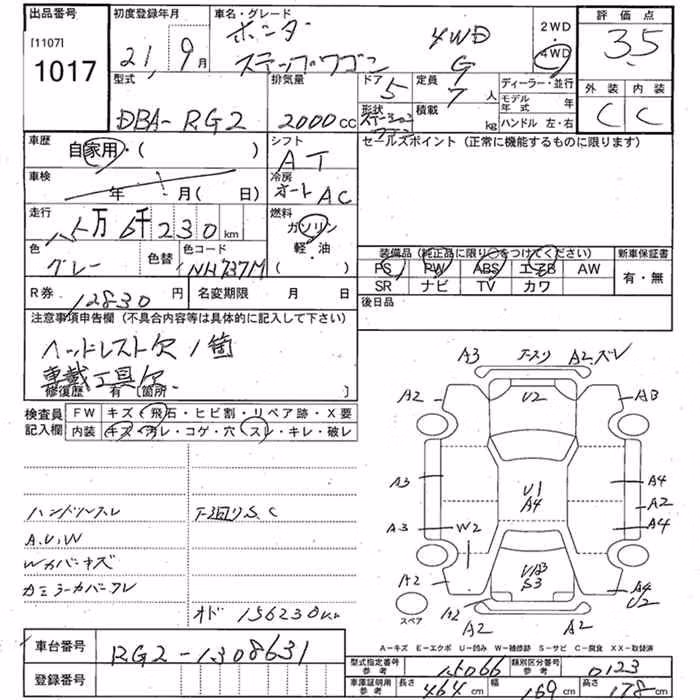 出品番号 初度登録年月 車名・グレード 2WD 評価点
[1107] 21年9月 ホンダ 4WD 4WD 3.5
1017 ステップワゴン G
型式 排気量 ドア 定員 ディーラー・並行 外装 内装
DBA- RG2 2000cc 5 7人 モデル年式 年 C C
形状 ステーションワゴン 積載 kg ハンドル 左・右
車歴 自家用・( ) シフト AT セールスポイント (正常に機能するものに限ります)
車検 年 月( 日) 冷房 オート AC
走行 万6千230km 燃料 ガソリン
色 グレー 色替 色コード NH737M 軽・油 ( )
装備品 (純正品に限り○をつけてください) 新車保証書
PS PW ABS エアB AW 有・無
SR ナビ TV カワ
R券 12830円 名変期限 月 日 後日品
注意事項申告欄 (不具合内容等は具体的に記入して下さい)
ヘッドレスト欠1箇
車載工具欠
修復歴 有 〔箇所 〕
検査員 FW キズ・飛石・ヒビ割・リペア跡・X要
記入欄 内装 キズ・汚レ・コゲ・穴・スレ・キレ・破レ
ハンドルスレ 下廻りS.C
A.U.W
Wカバーキズ
オド 156230km
A3 A2.ズレ
A2 U2 AB
A3 U1 A4 A4
A2
A3 W2 A4
A2 UA3 S3 A4 U2
スペア A2 A2 A2
A-キズ E-エクボ U-凹み W-補修跡 S-サビ C-腐食 XX-取替済
車台番号 RG2-1308631
型式指定番号 参考 15066 類別区分番号 参考 0123
登録番号 車庫証明用 参考 長さ 464cm 幅 169cm 高さ 178cm